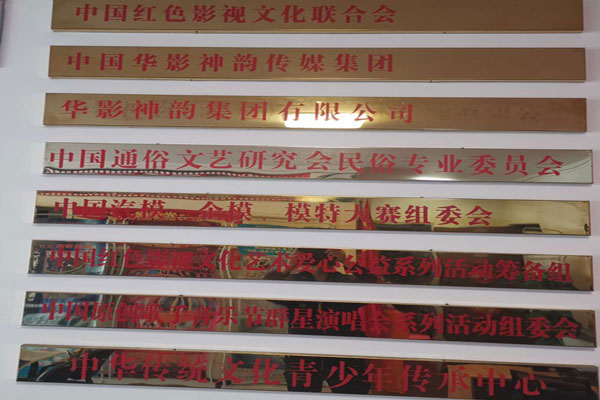 中国红色影视文化联合会
中国华影神韵传媒集团
华影神韵集团有限公司
中国通俗文艺研究会民俗专业委员会
中国汽模、仝模、模特大赛组委会
中国红色影视文化艺术爱心公益系列活动筹备组
中国原创歌手音乐节群星演唱会系列活动组委会
中华传统文化青少年传承中心